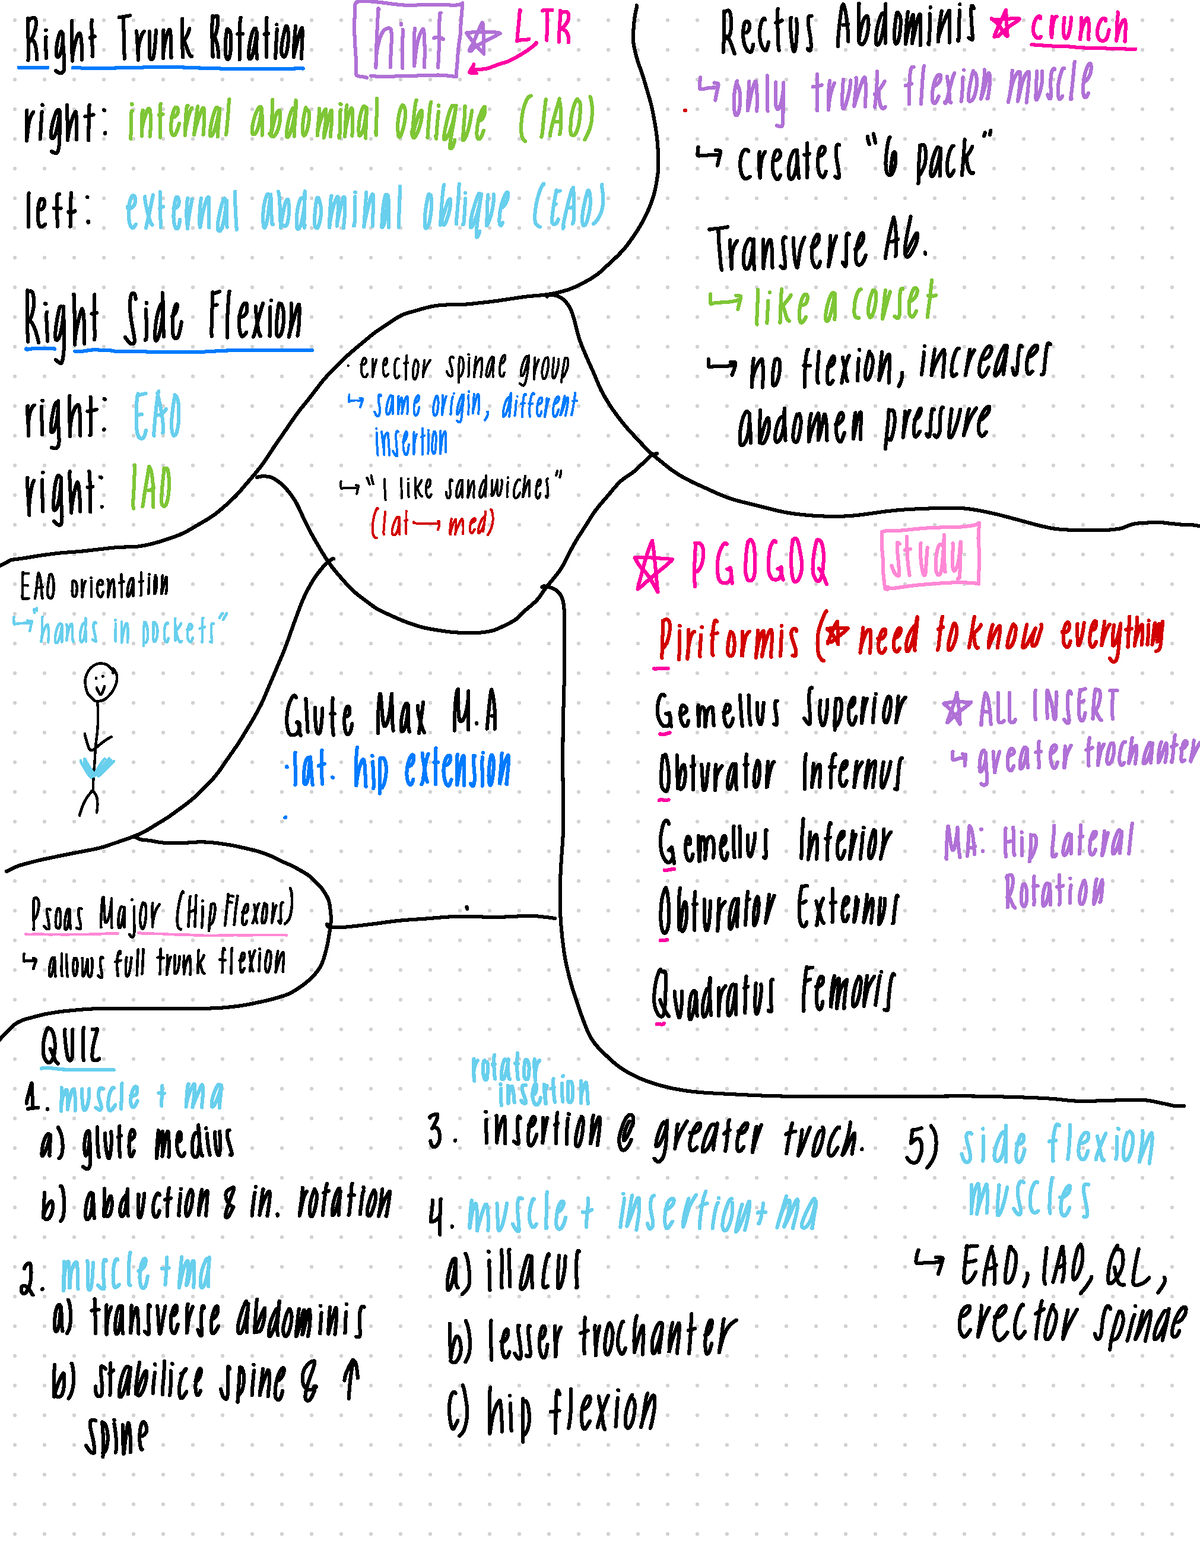 Right Trunk Rotation
hint ☆ LTR
right: internal abdominal oblique (IAO)
left: external abdominal oblique (EAO)
Right Side Flexion
right: EAO
right: IAO
Rectus Abdominis ☆ crunch
↳ only trunk flexion muscle
↳ creates "6 pack"
Transverse Ab.
↳ like a corset
↳ no flexion, increases
abdomen pressure
· erector spinae group
↳ same origin, different
insertion
↳ "I like sandwiches"
(lat → med)
EAO orientation
↳ "hands in pockets"
Glute Max M.A
· lat. hip extension
Psoas Major (Hip Flexors)
↳ allows full trunk flexion
☆ PGOGOQ study
Piriformis (☆ need to know everything
Gemellus Superior
Obturator Infernus
Gemellus Inferior
Obturator Externus
Quadratus Femoris
☆ ALL INSERT
↳ greater trochanter
MA: Hip Lateral
Rotation
QUIZ
1. muscle + ma
a) glute medius
b) abduction & in. rotation
2. muscle + ma
a) transverse abdominis
b) stabilice spine & ↑
spine
rotator
insertion
3. insertion @ greater troch.
4. muscle + insertion + ma
a) illacus
b) lesser trochanter
c) hip flexion
5) side flexion
muscles
↳ EAO, IAO, QL,
erector spinae